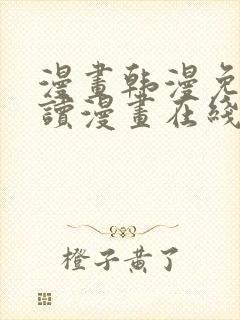 漫畫韩漫免
讀漫畫在綫
橙子黄了